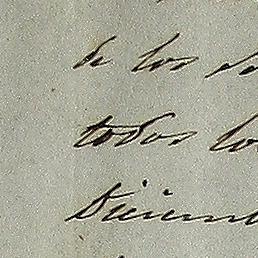 de los
todos lo
Diciem